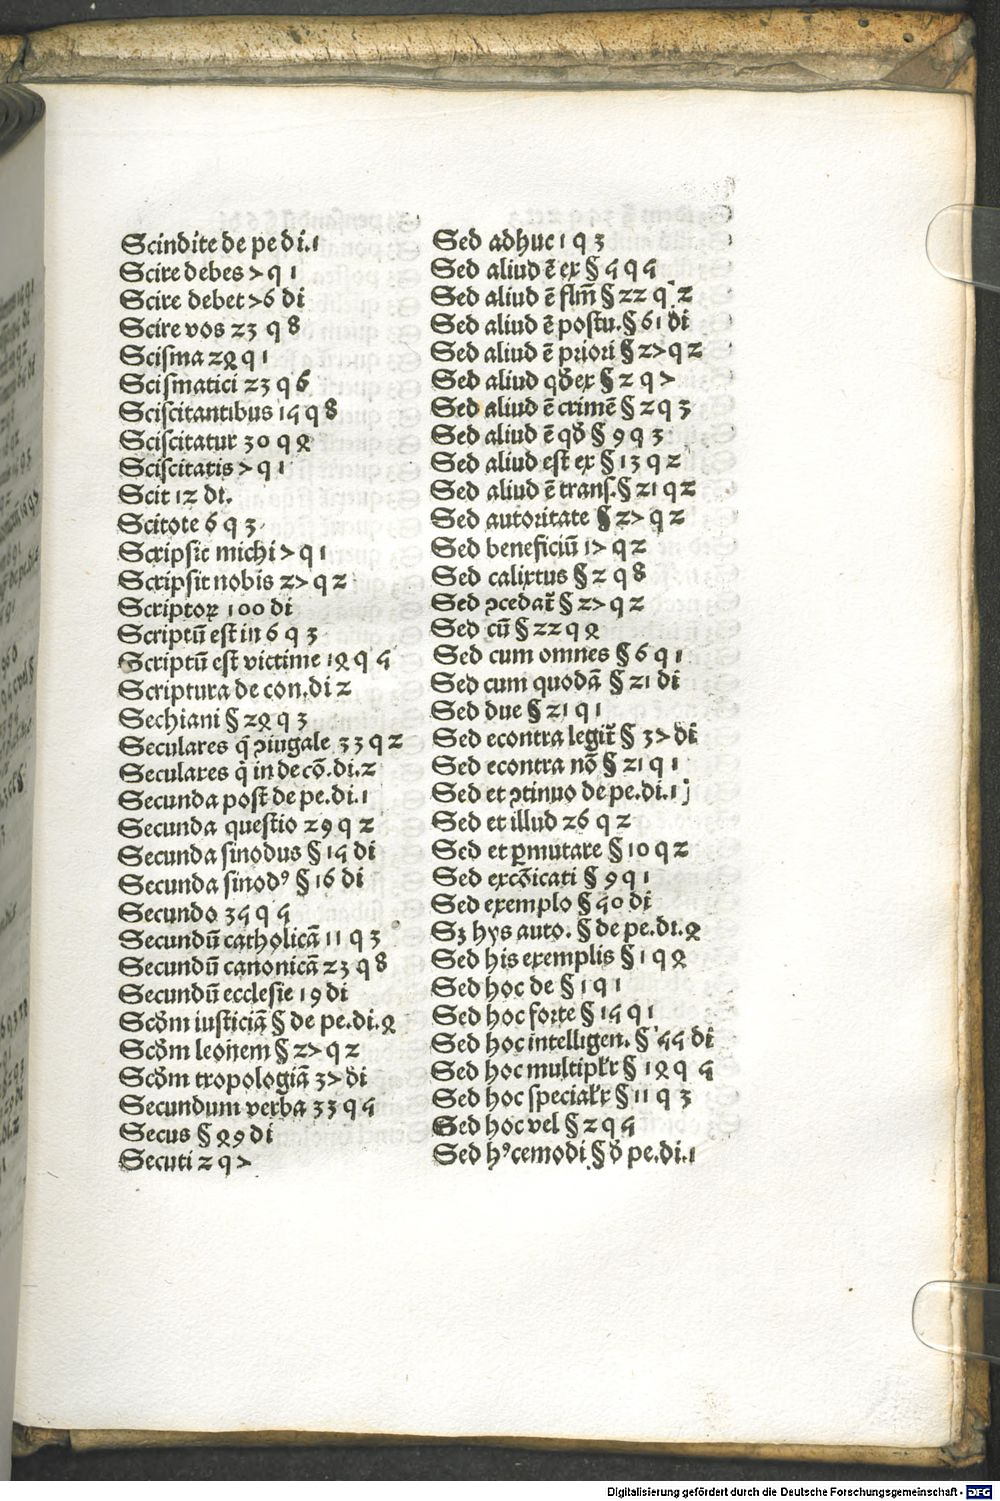 Scindite de pe di.1
Scire debes 7 q 1
Scire debet 76 di
Scire vos 23 q 8
Scisma 24 q 1
Scismatici 23 q 6
Sciscitantibus 15 q 8
Sciscitatur 30 q 4
Sciscitatis 7 q 1
Scit 12 di.
Scitote 6 q 3
Scripsit michi 7 q 1
Scripsit nobis 27 q 2
Scriptor 100 di
Scriptū est in 6 q 3
Scriptū est victime 14 q 5
Scriptura de con.di 2
Sechiani § 24 q 3
Seculares q̄ ꝯiugale 33 q 2
Seculares q̇ in de cō.di.2
Secunda post de pe.di.1
Secunda questio 29 q 2
Secunda sinodus § 15 di
Secunda sinodꝰ § 16 di
Secundo 35 q 5
Secundū catholicā 11 q 3
Secundū canonicā 23 q 8
Secundū ecclesie 19 di
Scd̄m iusticiā § de pe.di.4
Scd̄m leonem § 27 q 2
Scd̄m tropologiā 37 di
Secundum verba 33 q 5
Secus § 49 di
Secuti 2 q 7
Sed adhuc 1 q 3
Sed aliud ē ex § 5 q 5
Sed aliud ē slm̄ § 22 q 2
Sed aliud ē postu.§ 61 di
Sed aliud ē priori § 27 q 2
Sed aliud qd̄ ex § 2 q 7
Sed aliud ē crimē § 2 q 3
Sed aliud ē qd̄ § 9 q 3
Sed aliud est ex § 13 q 2
Sed aliud ē trans.§ 21 q 2
Sed autoritate § 27 q 2
Sed beneficiū 17 q 2
Sed calixtus § 2 q 8
Sed ꝯcedat̄ § 27 q 2
Sed cū § 22 q 4
Sed cum omnes § 6 q 1
Sed cum quodā § 21 di
Sed due § 21 q 1
Sed econtra legit̄ § 37 di
Sed econtra nō § 21 q 1
Sed et ꝯtinuo de pe.di.1
Sed et illud 26 q 2
Sed et ꝑmutare § 10 q 2
Sed excōicati § 9 q 1
Sed exemplo § 50 di
Sꝫ hys auto. § de pe.di.4
Sed his exemplis § 1 q 4
Sed hoc de § 1 q 1
Sed hoc forte § 15 q 1
Sed hoc intelligen. § 55 di
Sed hoc multipl̄r § 14 q 5
Sed hoc special̄r § 11 q 3
Sed hoc vel § 2 q 5
Sed hꝰcemodi § d̄ pe.di.1
Digitalisierung gefördert durch die Deutsche Forschungsgemeinschaft - DFG